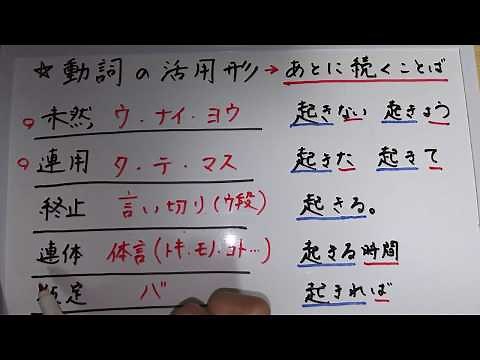 ☆動詞の活用形→あとに続くことば
未然 ウ・ナイ・ヨウ 起きない 起きよう
連用 タ・テ・マス 起きた 起きて
終止 言い切り(ウ段) 起きる。
連体 体言(トキ・モノ・コト…) 起きる時間
定 バ 起きれば